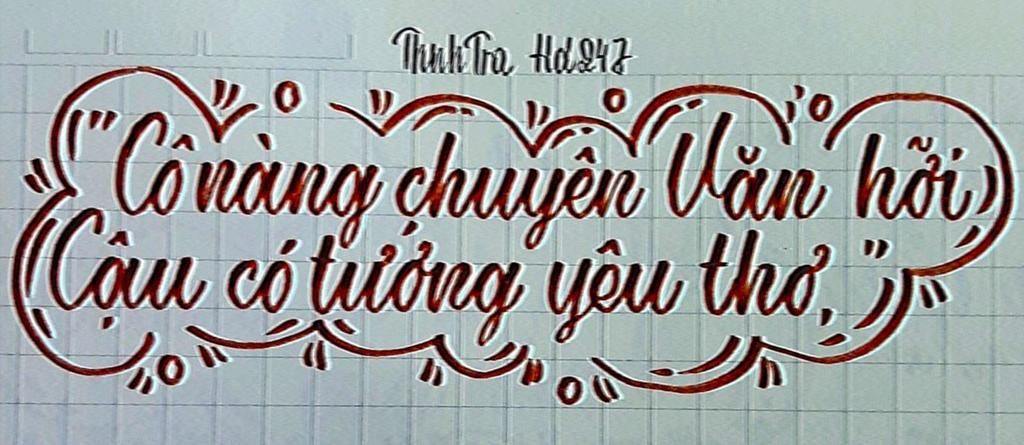 ThnhTra Hd247
"Cô nàng chuyên Văn hỡi,
Cậu có tướng yêu thơ."